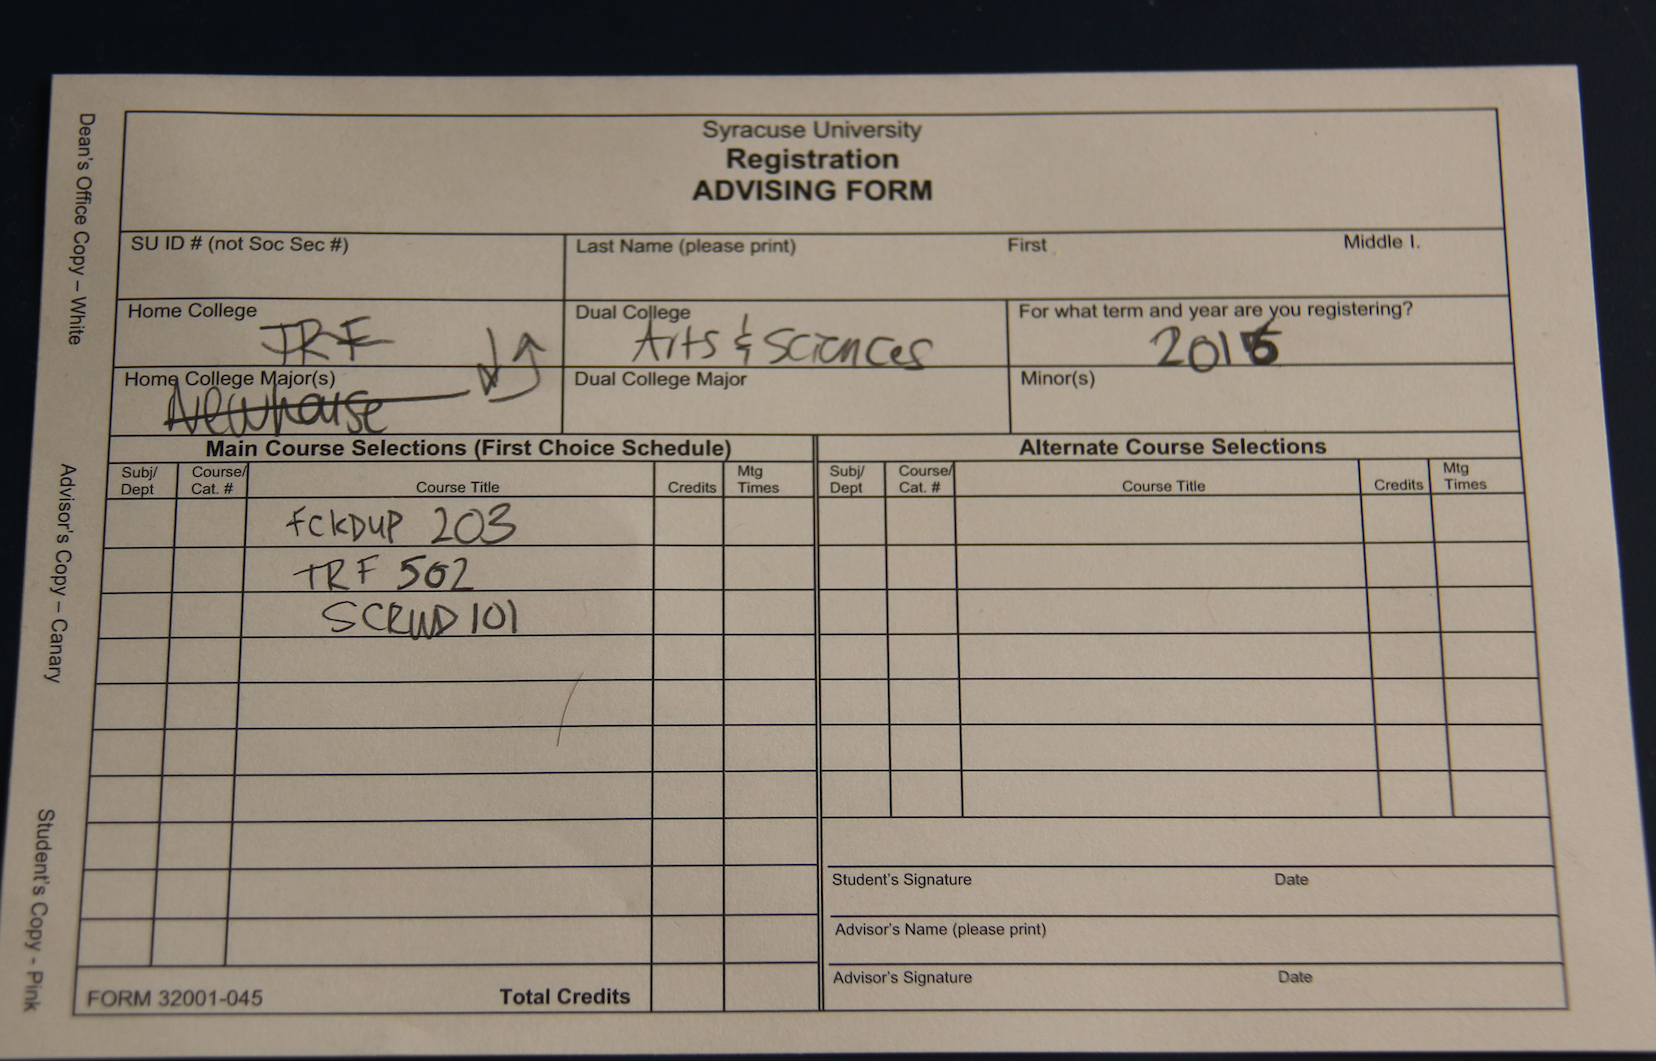 Syracuse University
Registration
ADVISING FORM
SU ID # (not Soc Sec #)
Last Name (please print) First Middle I.
Home College
JRF
Dual College
Arts & Sciences
For what term and year are you registering?
2016
Home College Major(s)
Newhouse
Dual College Major
Minor(s)
Main Course Selections (First Choice Schedule)
Alternate Course Selections
Subj/ Dept
Course/ Cat. #
Course Title
Credits
Mtg Times
Subj/ Dept
Course/ Cat. #
Course Title
Credits
Mtg Times
fCKDUP 203
TRF 502
SCRWD 101
FORM 32001-045
Total Credits
Student's Signature Date
Advisor's Name (please print)
Advisor's Signature Date
Dean's Office Copy – White
Advisor's Copy – Canary
Student's Copy - Pink